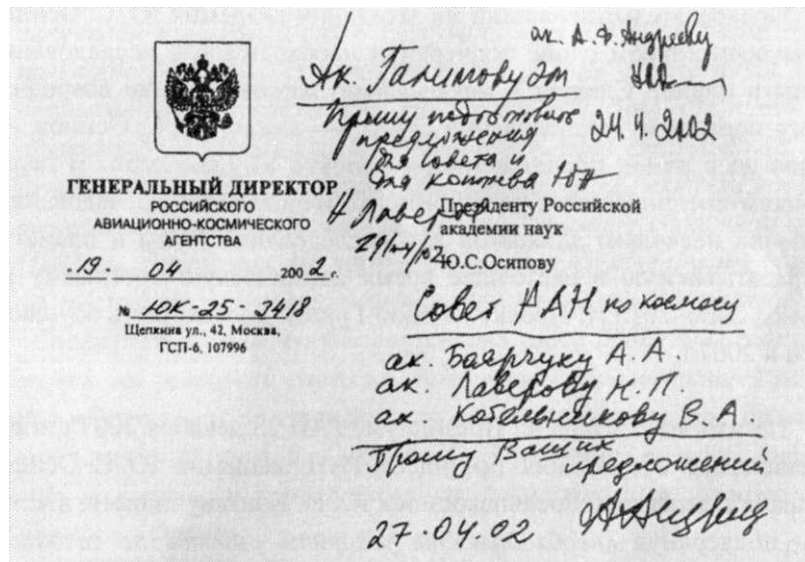 ак. А.Ф. Андрееву
Ак. Галимову Эм
24.4.2002
Прошу подготовить
предложения
для совета и
для
Н Лаверов
29/04/02
ГЕНЕРАЛЬНЫЙ ДИРЕКТОР
РОССИЙСКОГО
АВИАЦИОННО-КОСМИЧЕСКОГО
АГЕНТСТВА
.19. 04 2002 г.
№ ЮК-25-3418
Щепкина ул., 42, Москва,
ГСП-6, 107996
Президенту Российской
академии наук
Ю.С.Осипову
Совет РАН по космосу
ак. Боярчуку А.А
ак. Лаверову Н.П
ак. Котельникову В.А.
Прошу Ваших
предложений
27.04.02